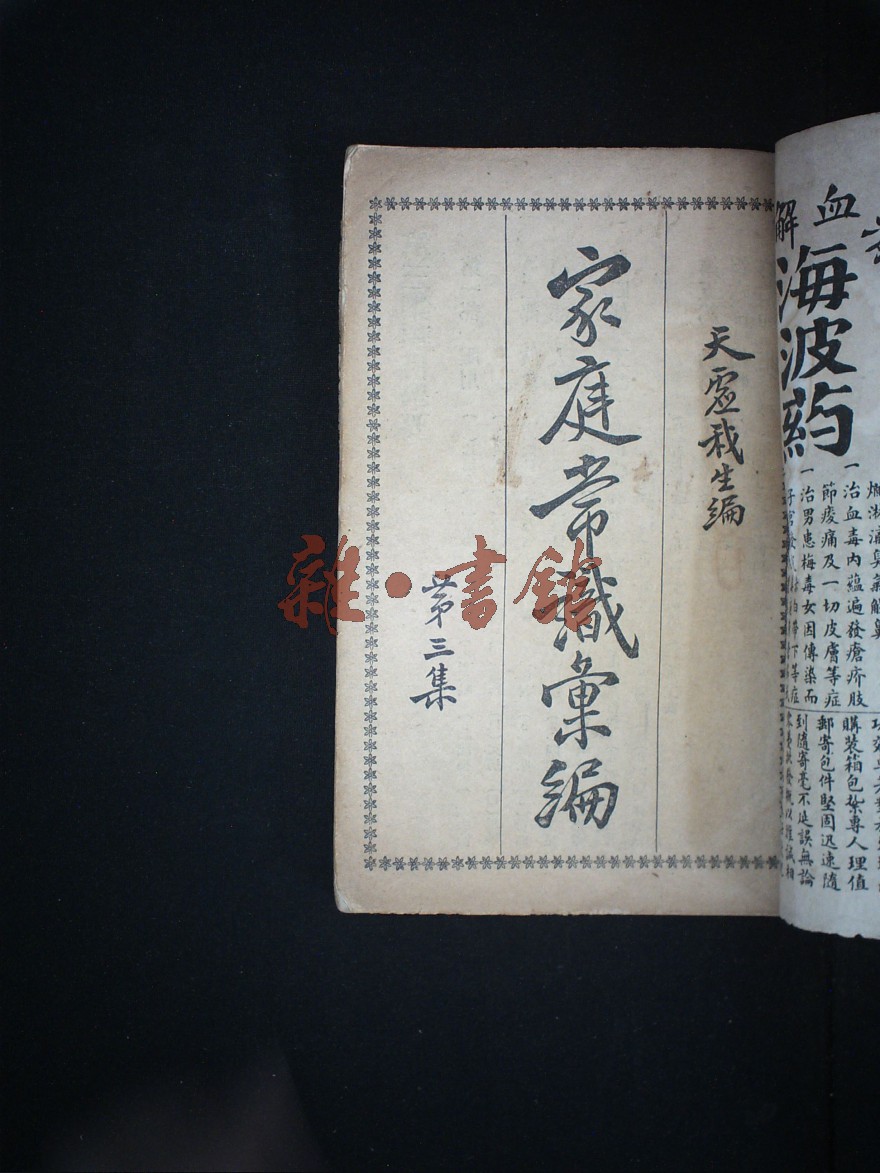 血解
海波葯
一治血毒內蘊遍發瘡疥肢
節痠痛及一切皮膚等症
一治男患梅毒女因傳染而
帶下等症
購裝箱包紮專人理值
郵寄包件堅固迅速隨
到隨寄毫不延誤無論
天虛我生編
家庭常識彙編
第三集
雜·書館